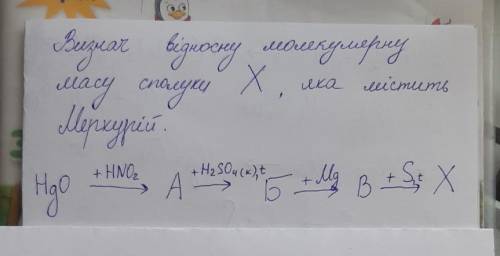 Визнач відносну молекулярну
масу сполуки X, яка містить
Меркурій.
HgO +HNO₃→ А +H₂SO₄(к),t→ Б +Mg→ В +S,t→ X